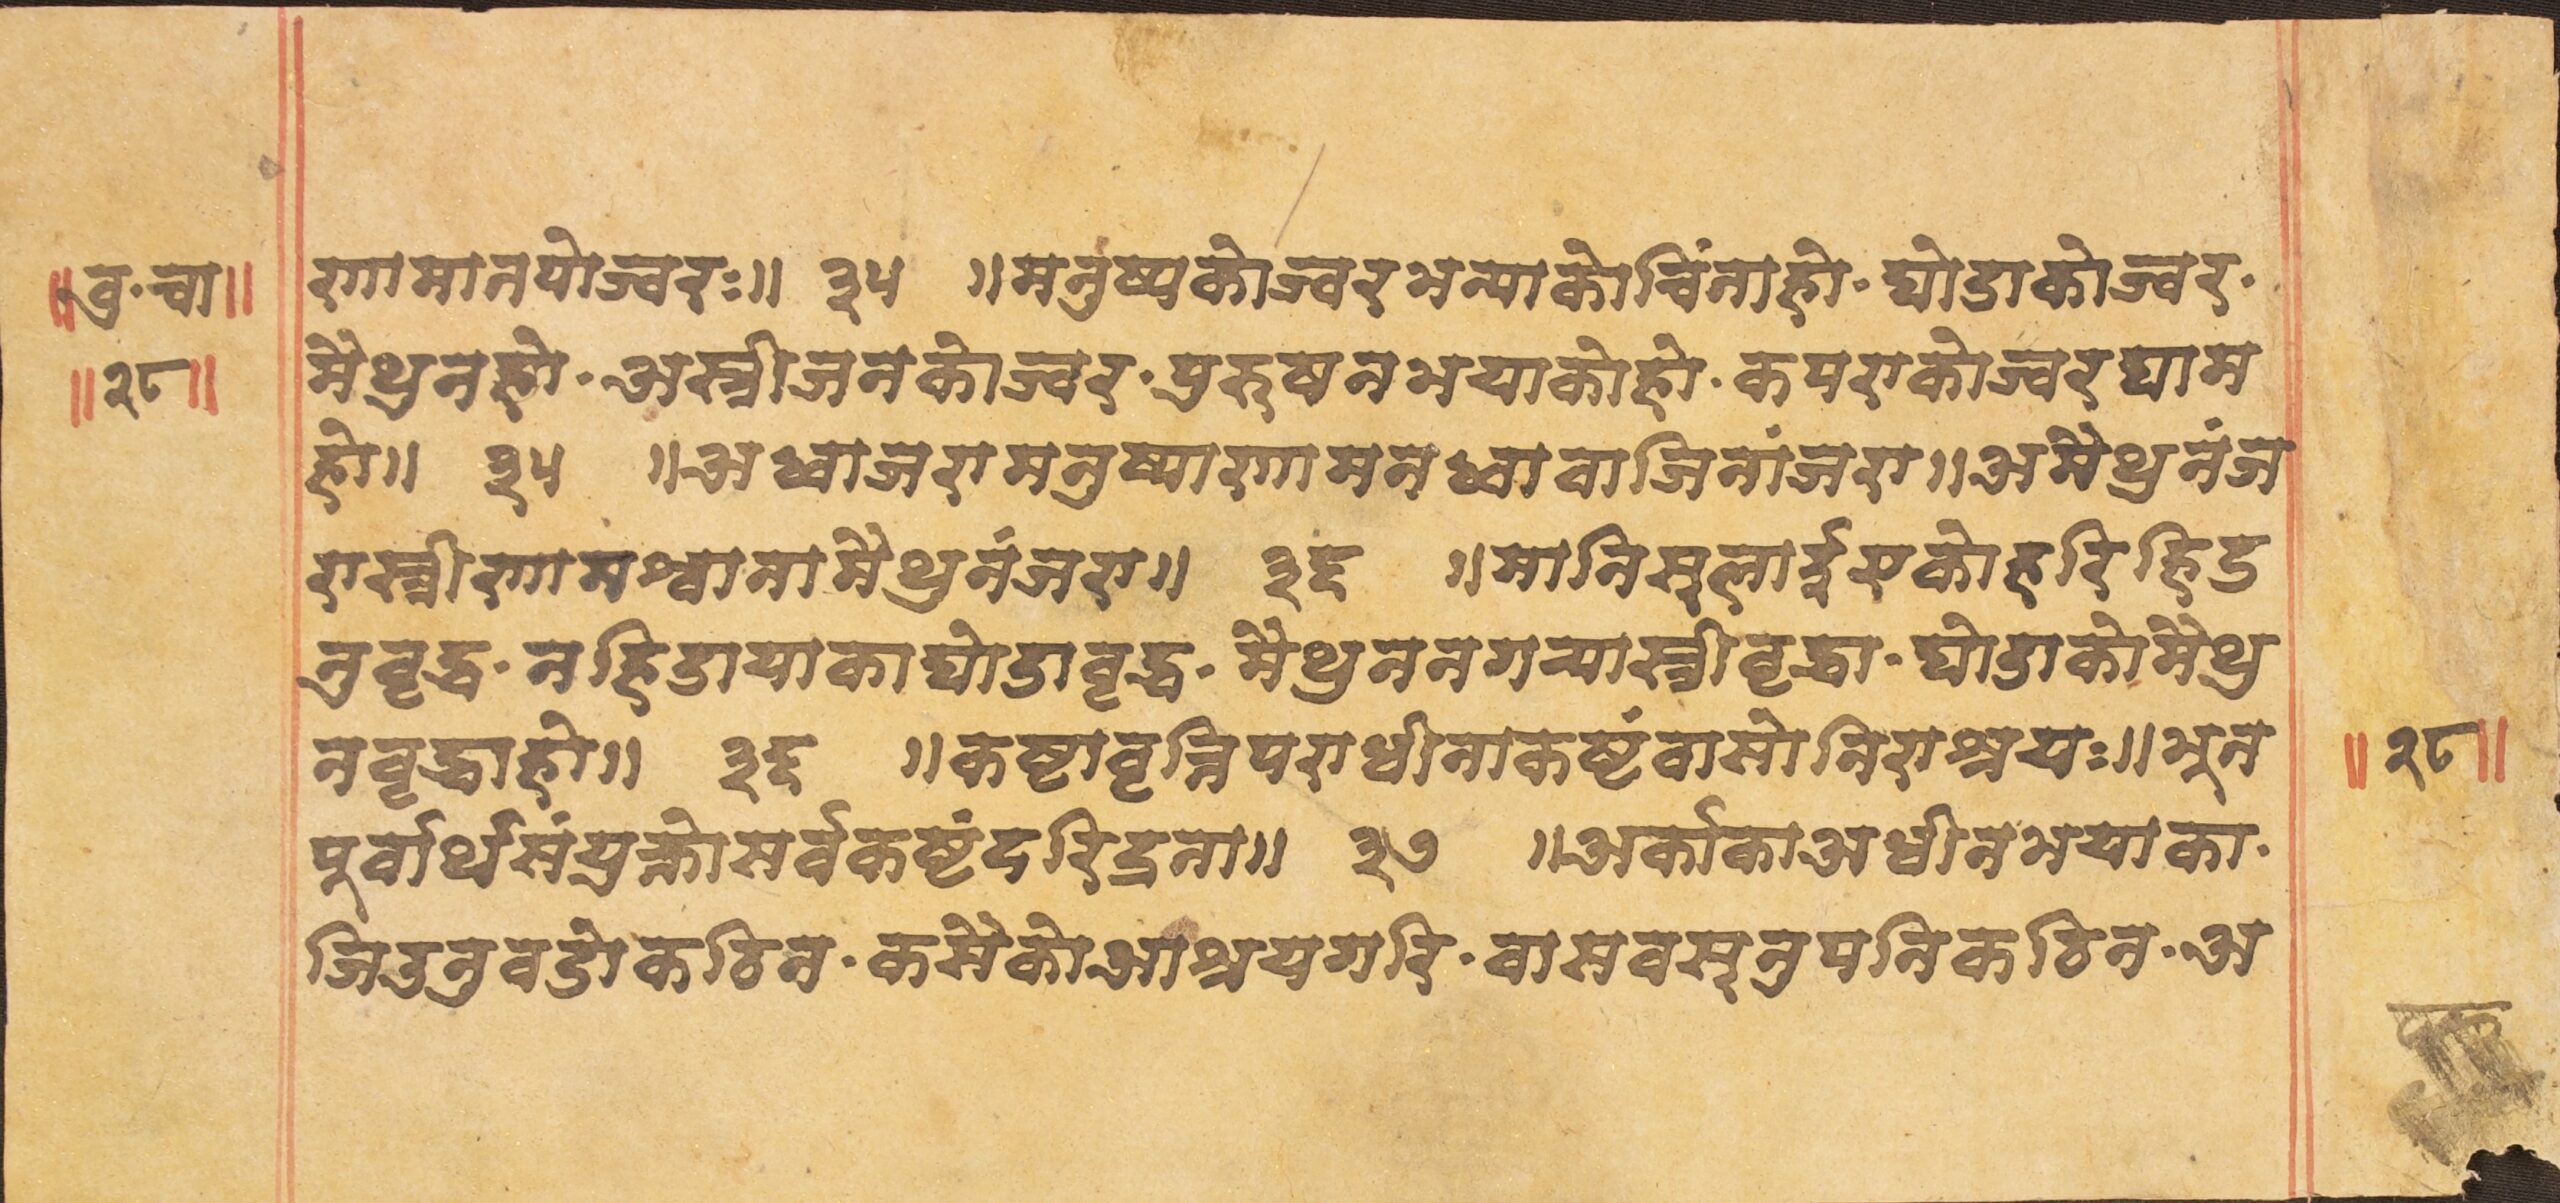 ॥वु·चा॥
॥२८॥
रणामातपोज्वरः॥ ३५ ॥मनुष्यकोज्वरभन्याकोचिंताहो·घोडाकोज्वर·
मैथुनहो·अस्त्रीजनकोज्वर·पुरुषनभयाकोहो·कपराकोज्वरघाम
हो॥ ३५ ॥अध्वाजरामनुष्याणामनध्वावाजिनांजरा॥अमैथुनंज
रास्त्रीणामश्वानामैथुनंजरा॥ ३६ ॥मानिसलाई्एकोहरिहिड
नुवृद्ध·नहिडायाकाघोडावृद्ध·मैथुननगन्यास्त्रीवृद्धा·घोडाकोमैथु
नवृद्धाहो॥ ३६ ॥कष्टावृत्तिपराधीनाकष्टंवासोनिराश्रयः॥भून
पूर्वार्थसंयुक्तोसर्वकष्टंदरिद्रता॥ ३७ ॥अर्काकाअधीनभयाका·
जिउनुवडोकठिन·कसैकोआश्रयगरि·वासवस्नुपनिकठिन·अ
॥२८॥